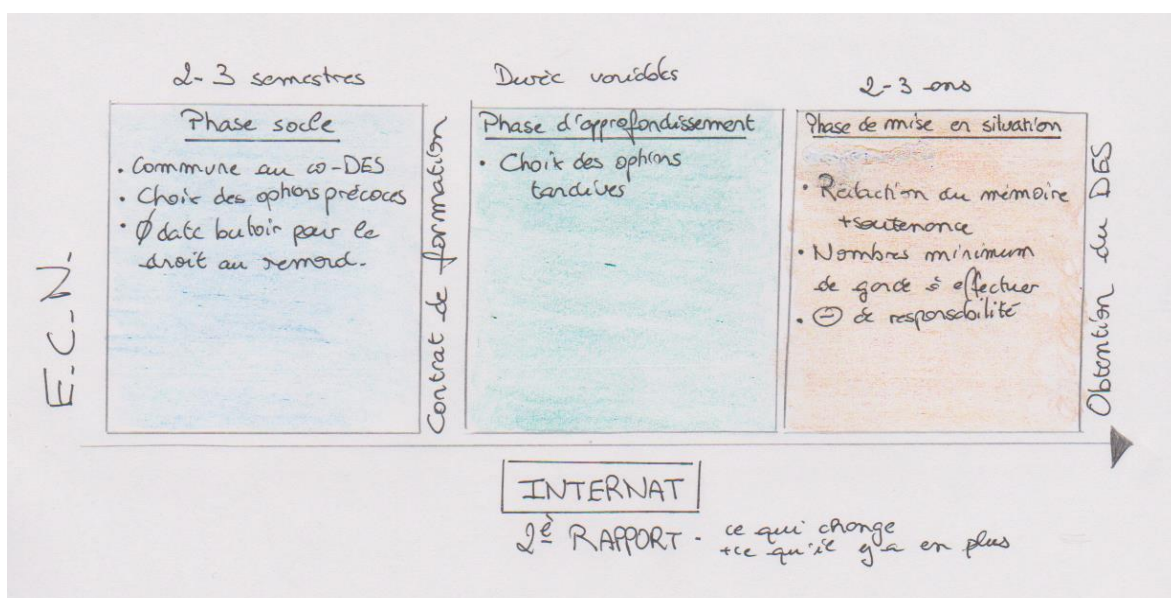 E.C.N.
2-3 semestres
Phase socle
• Commune au co-DES
• Choix des options précoces
• Ø date butoir pour le
droit au remord.
Contrat de formation
Durée variables
Phase d'approfondissement
• Choix des options
tardives
2-3 ans
Phase de mise en situation
• Rédaction du mémoire
+soutenance
• Nombres minimum
de garde à effectuer
• ⊖ de responsabilité
Obtention du DES
INTERNAT
2è RAPPORT - ce qui change
+ce qu'il y'a en plus